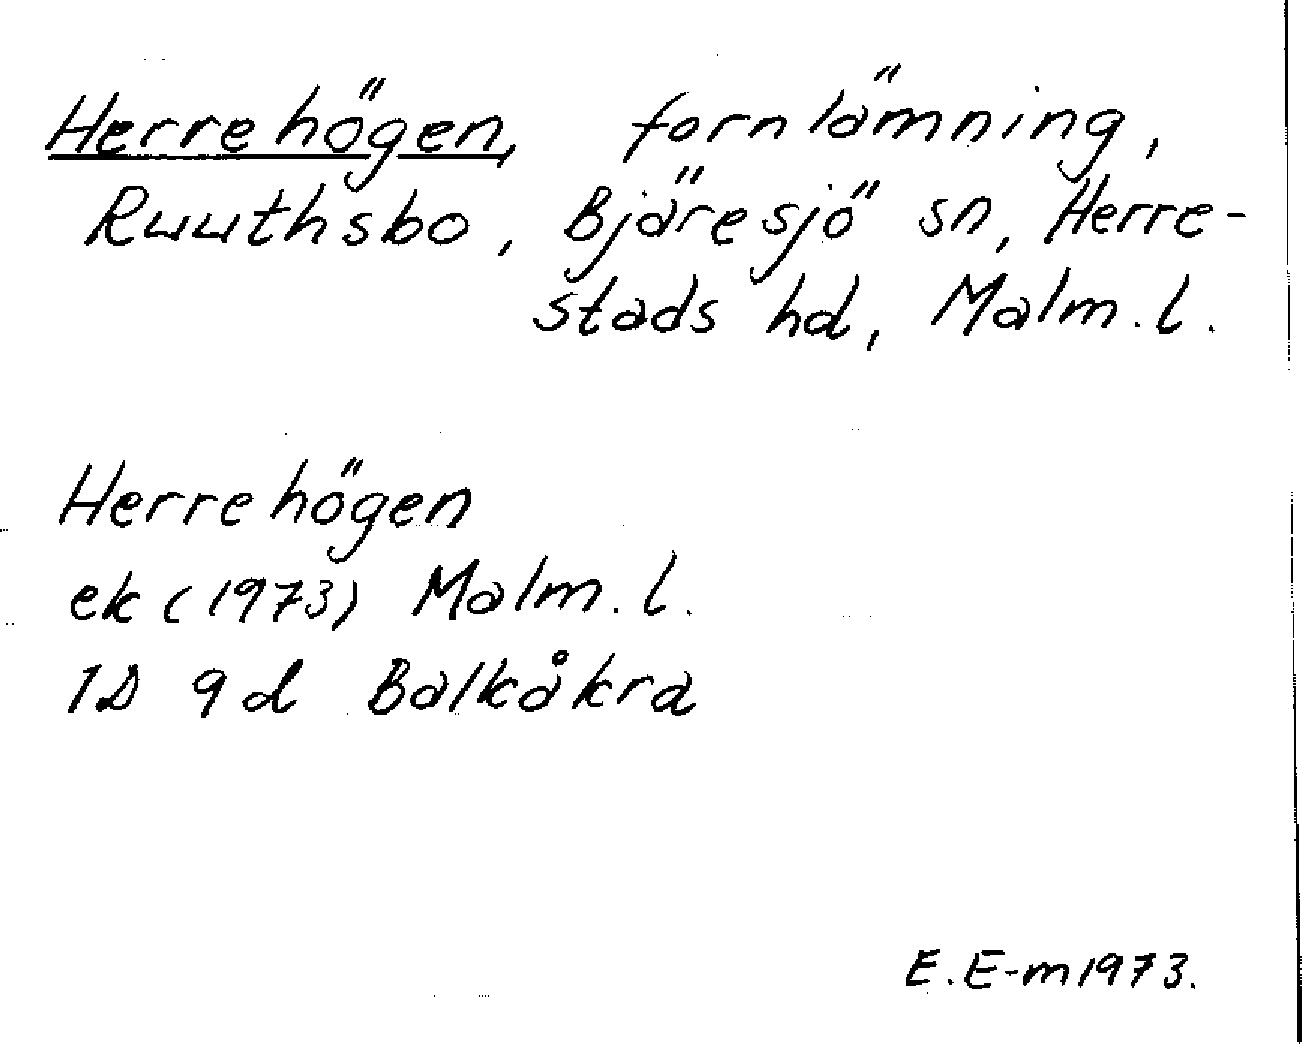 Herrehögen, fornlämning,
Ruuthsbo, Bjäresjö sn, Herre-
stads hd, Malm. l.
Herrehögen
ek (1973) Malm. l.
1D 9d Balkåkra
E. E-m 1973.